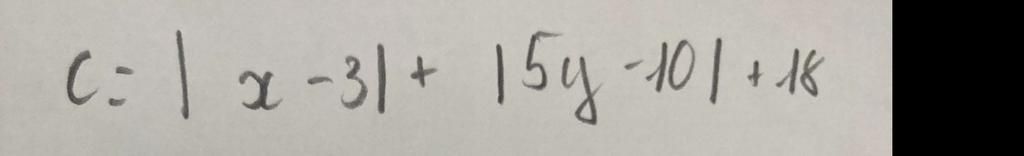 C = | x - 3 | + | 5y - 10 | + 18